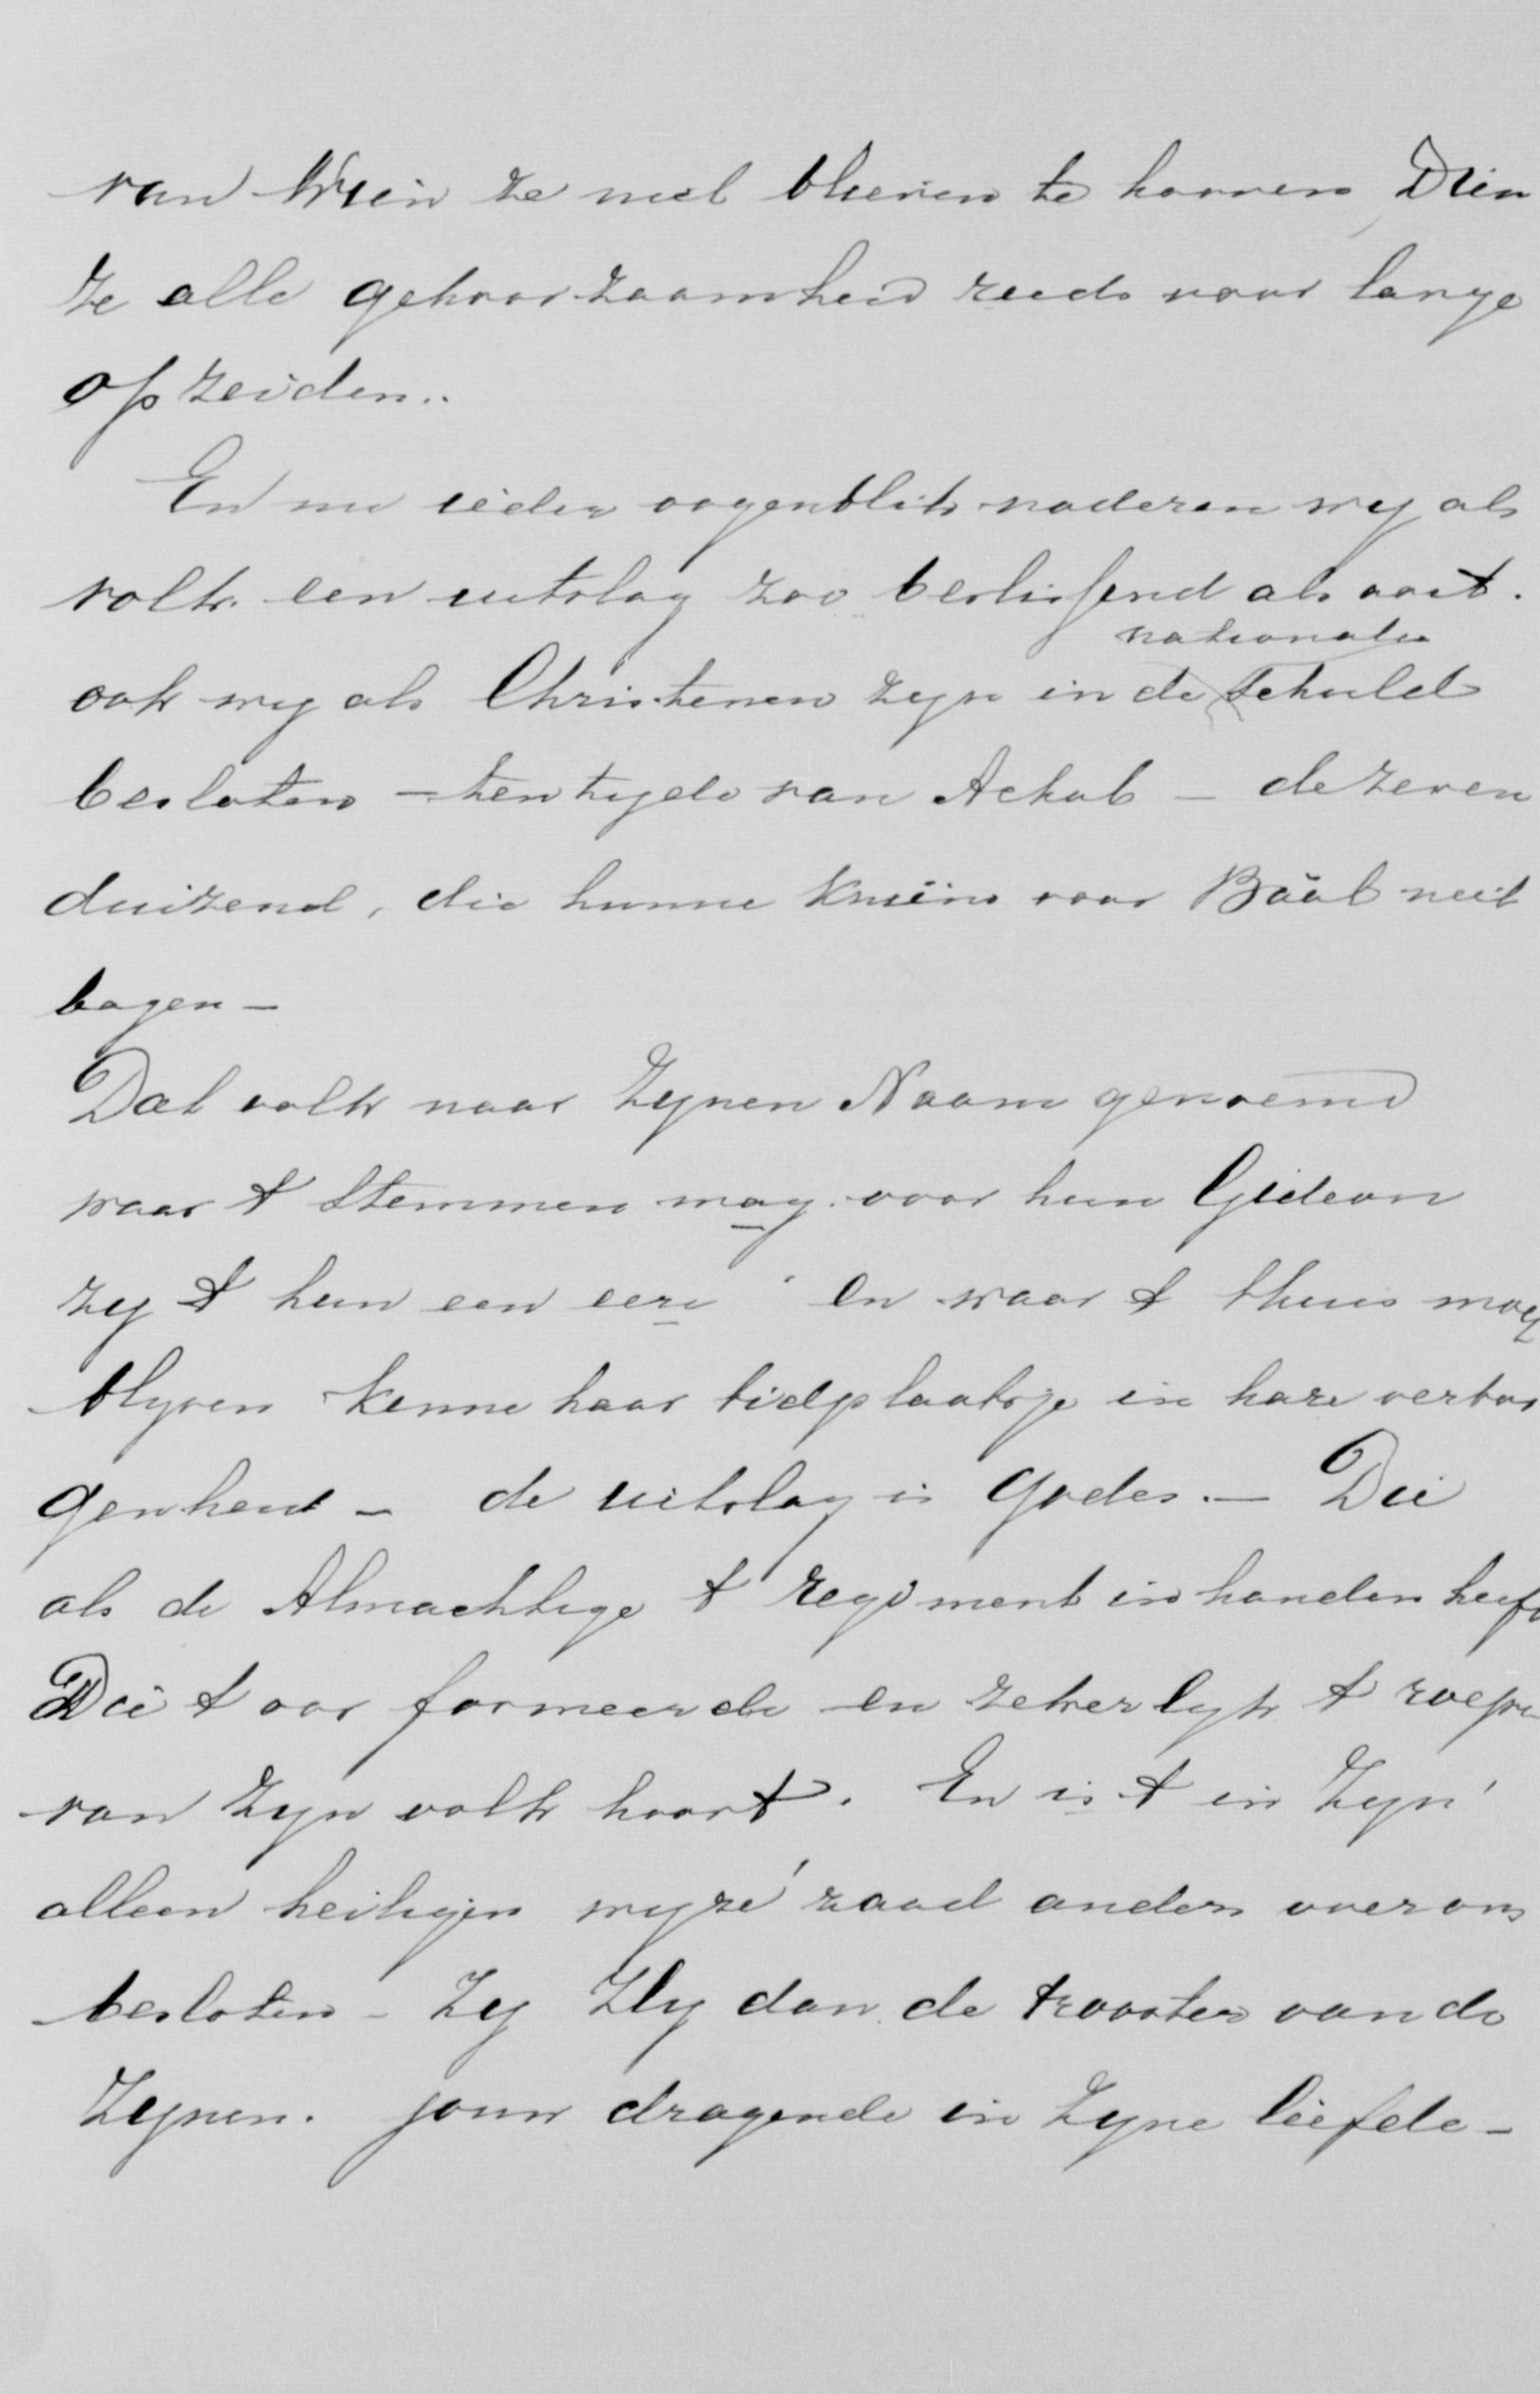 van Wien ze niet blieven te hooren, Dien
ze alle gehoorzaamheid reeds voor lange
opzeiden..
En nu ieder oogenblik naderen wy als
volk een uitslag zoo beslissend als ooit.
nationale
ook wy als Christenen zyn in de schuld
besloten – ten tyde van Achab – de zeven
duizend, die hunne knieën voor Baäl niet
bogen –
Dat volk naar Zynen Naam genoemd
waar 't stemmen mag voor hun Gideon
zy 't hun een eere en waar 't thuis moet
blyven kenne haar bidplaatsje in hare verbor
genheid – de uitslag is Godes. – Die
als de Almachtige 't regiment in handen heeft
Die 't oor formeerde en zekerlyk 't roepen
van Zyn volk hoort. En is 't in Zyn
alleen heiligen wyze raad anders over ons
besloten – Zy Hy dan de trooster van de
Zynen. jouw dragende in Zyne liefde –